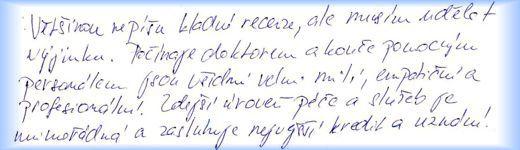 Většinou nepíšu kladné recenze, ale musím udělat
výjimku. Počínaje doktorem a konče pomocným
personálem jsou všichni velmi milí, empatičtí a
profesionální. Zdejší úroveň péče a služeb je
mimořádná a zasluhuje nejvyšší kredit a uznání.